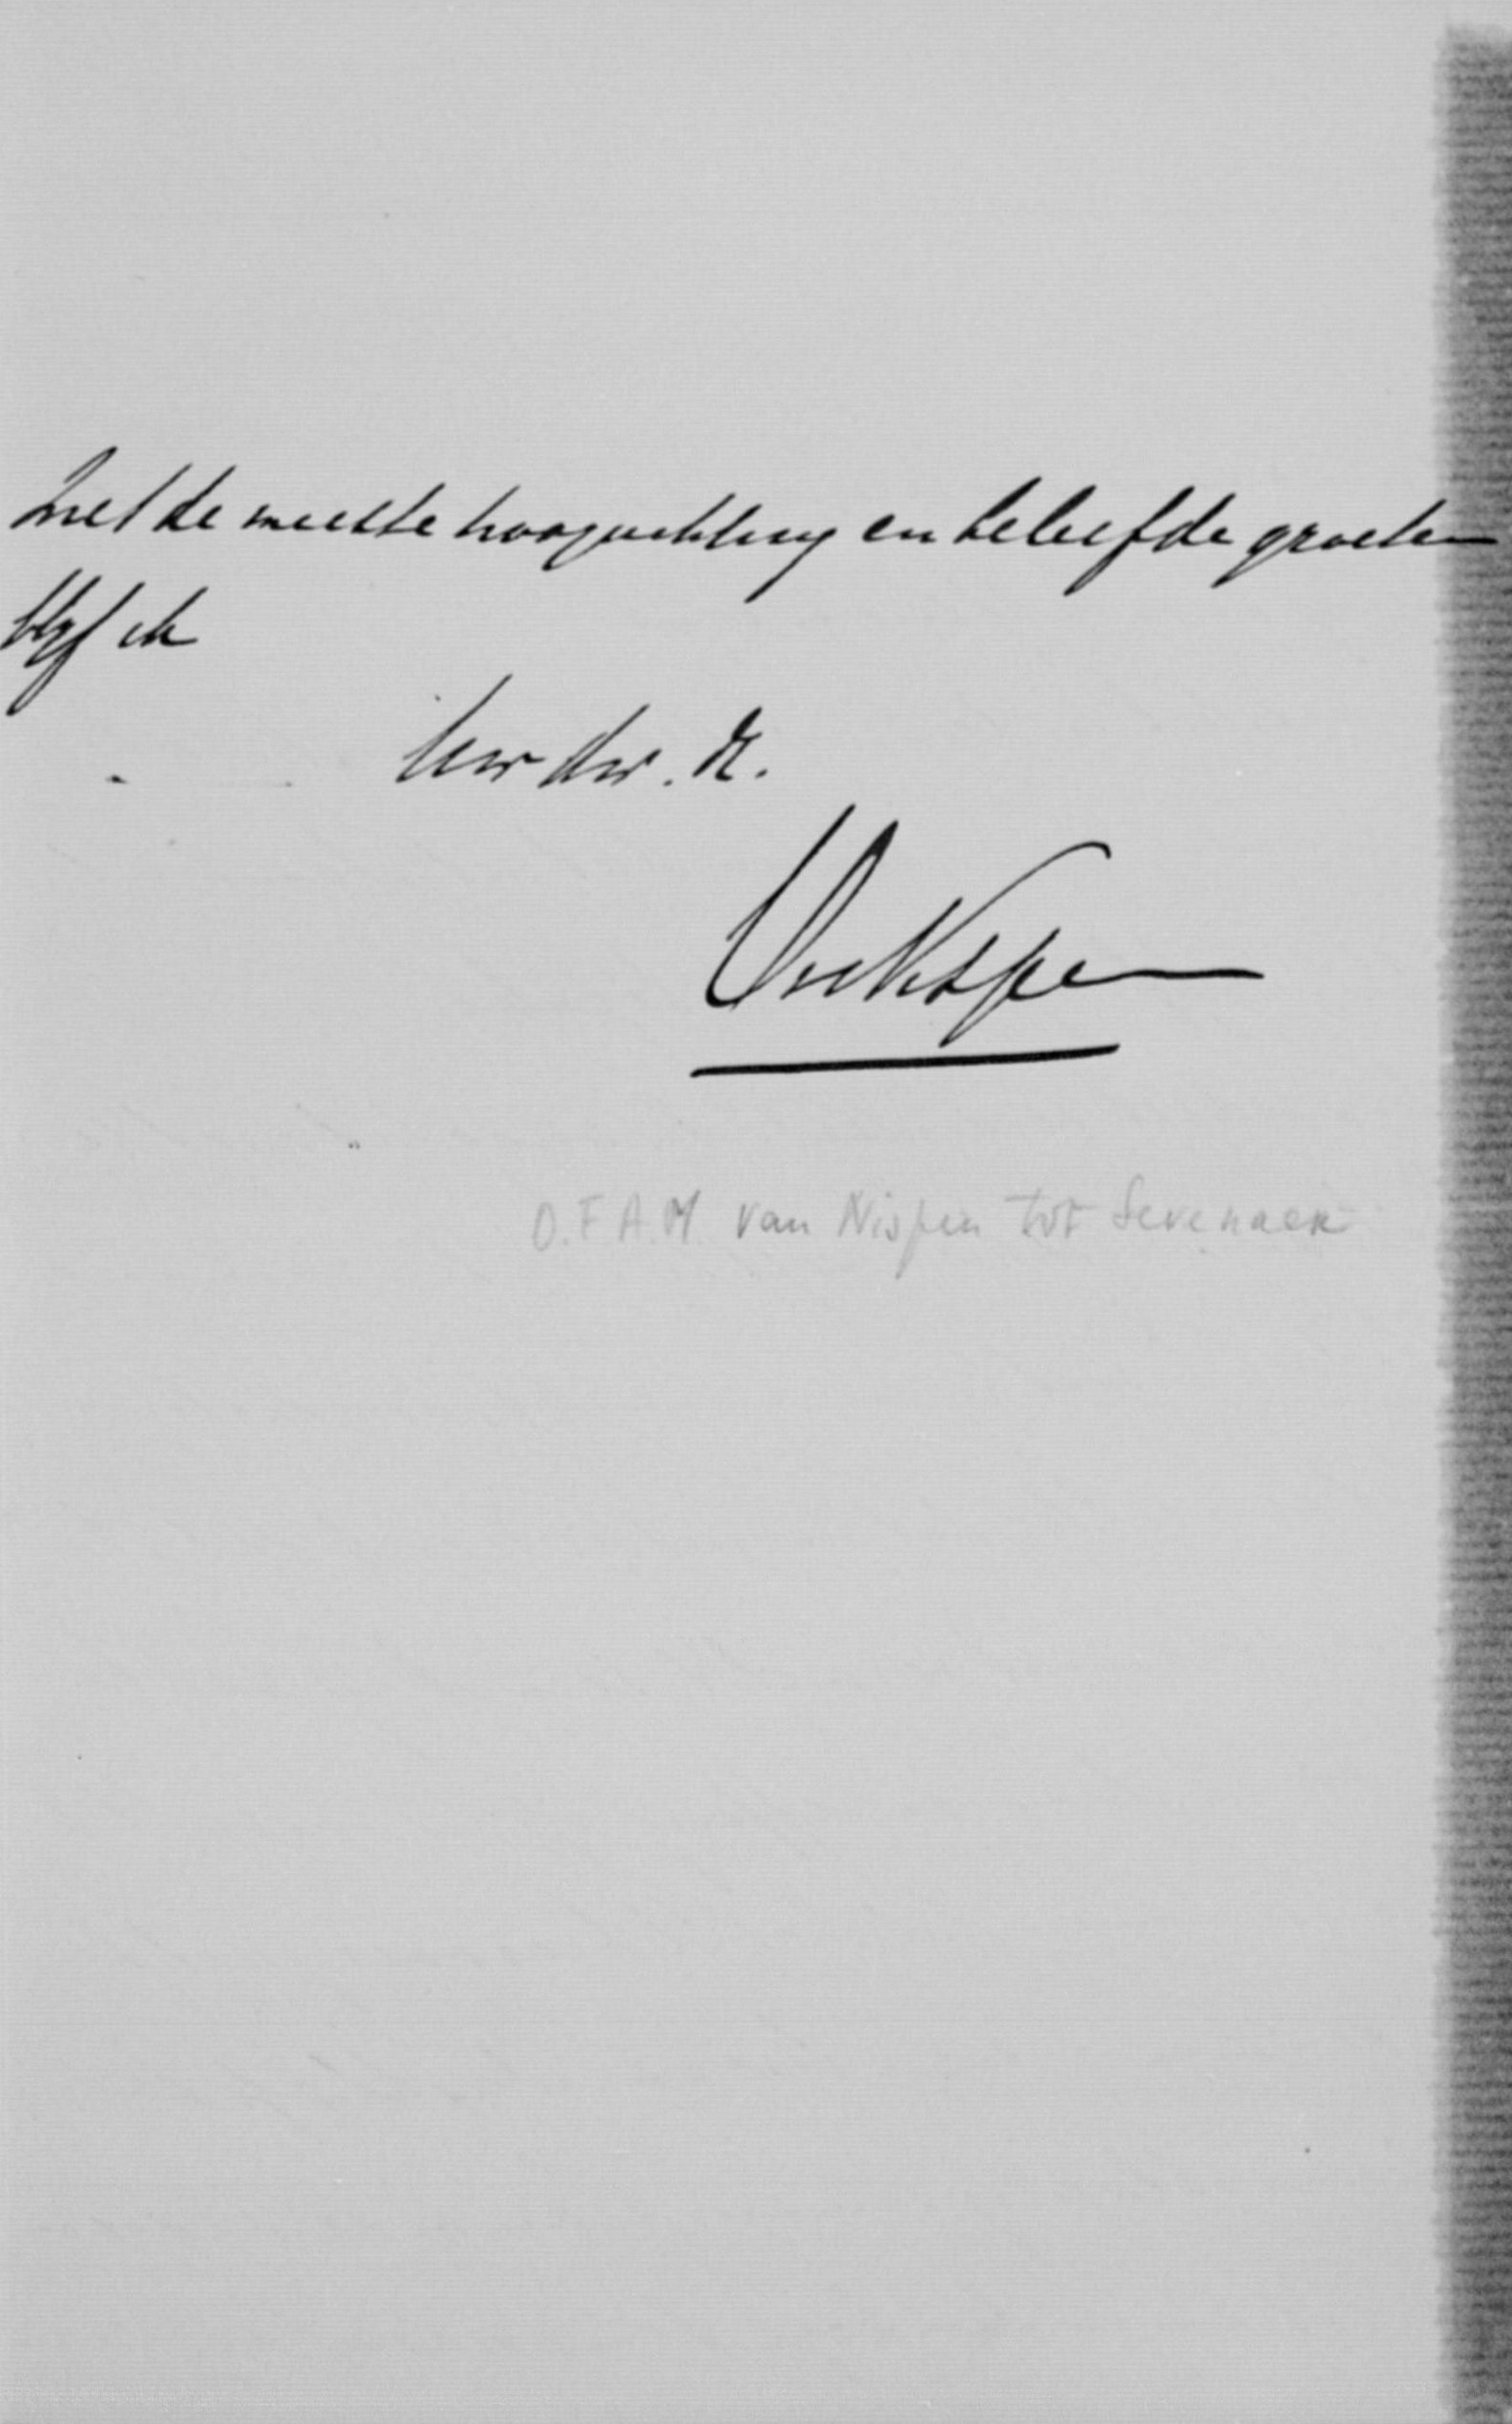 Met de meeste hoogachting en beleefde groeten
blijf ik
Uw dw. dr.
OvNispen
O.F.A.M. van Nispen tot Sevenaer